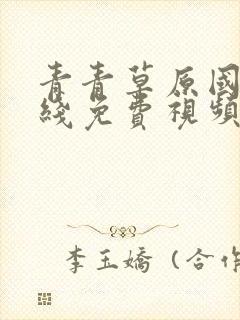 青青草原國
綫免費視頻
李玉嬌（合作